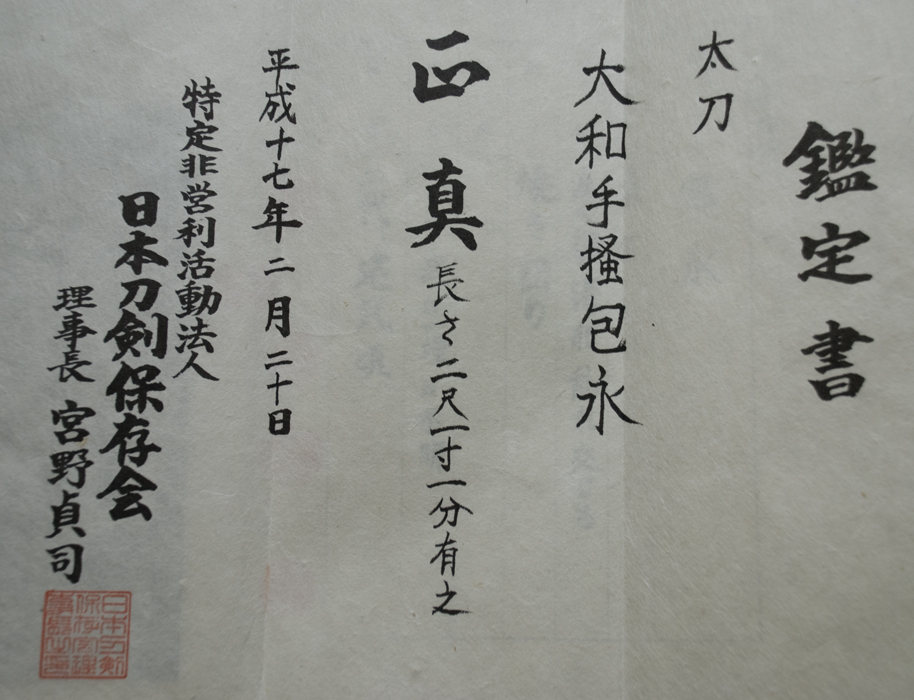 鑑定書
太刀
大和手掻包永
正真 長さ二尺一寸一分有之
平成十七年二月二十日
特定非営利活動法人
日本刀剣保存会
理事長 宮野貞司